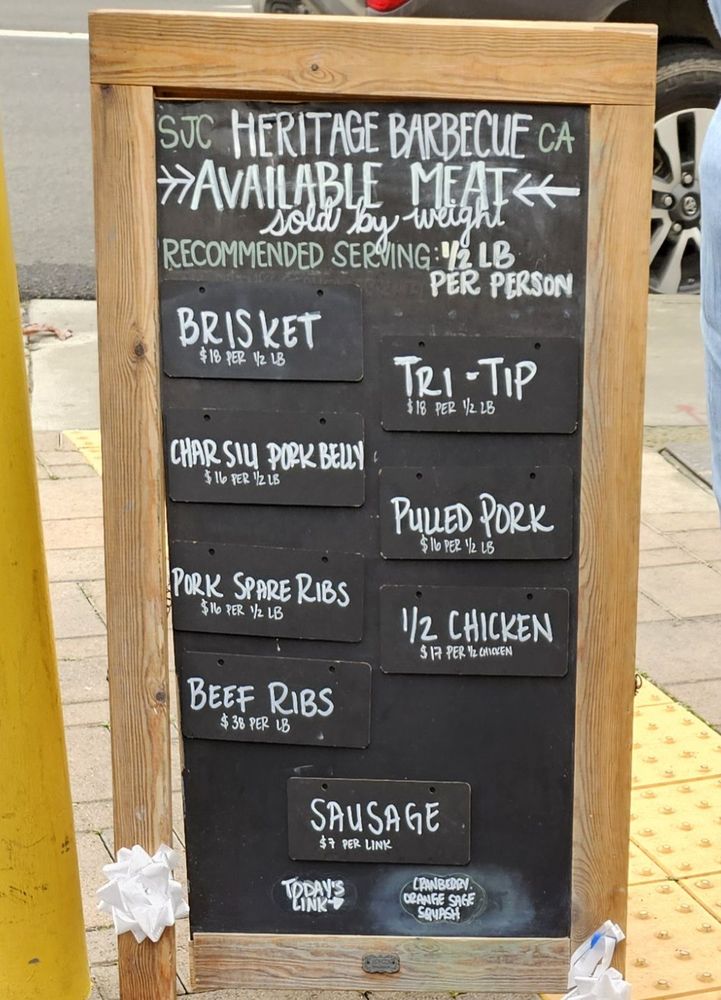 SJC HERITAGE BARBECUE CA
AVAILABLE MEAT
sold by weight
RECOMMENDED SERVING: 1/2 LB
PER PERSON
BRISKET
$18 PER 1/2 LB
TRI-TIP
$18 PER 1/2 LB
CHAR SIU PORK BELLY
$16 PER 1/2 LB
PULLED PORK
$16 PER 1/2 LB
PORK SPARE RIBS
$16 PER 1/2 LB
1/2 CHICKEN
$17 PER 1/2 CHICKEN
BEEF RIBS
$38 PER LB
SAUSAGE
$7 PER LINK
TODAY'S
LINK
CRANBERRY
ORANGE SAGE
SQUASH